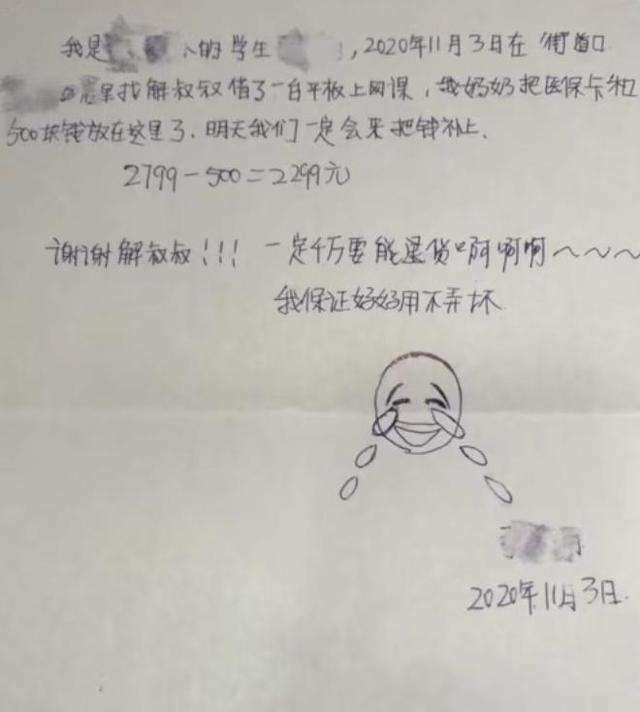 我是 的学生 ，2020年11月3日在 街首口
里找解叔叔借了一台平板上网课，我妈妈把医保卡和
500块钱放在这里了，明天我们一定会来把钱补上.
2799-500=2299元
谢谢解叔叔!!! 一定千万要能退货啊啊啊～～～
我保证好好用不弄坏
2020年11月3日.